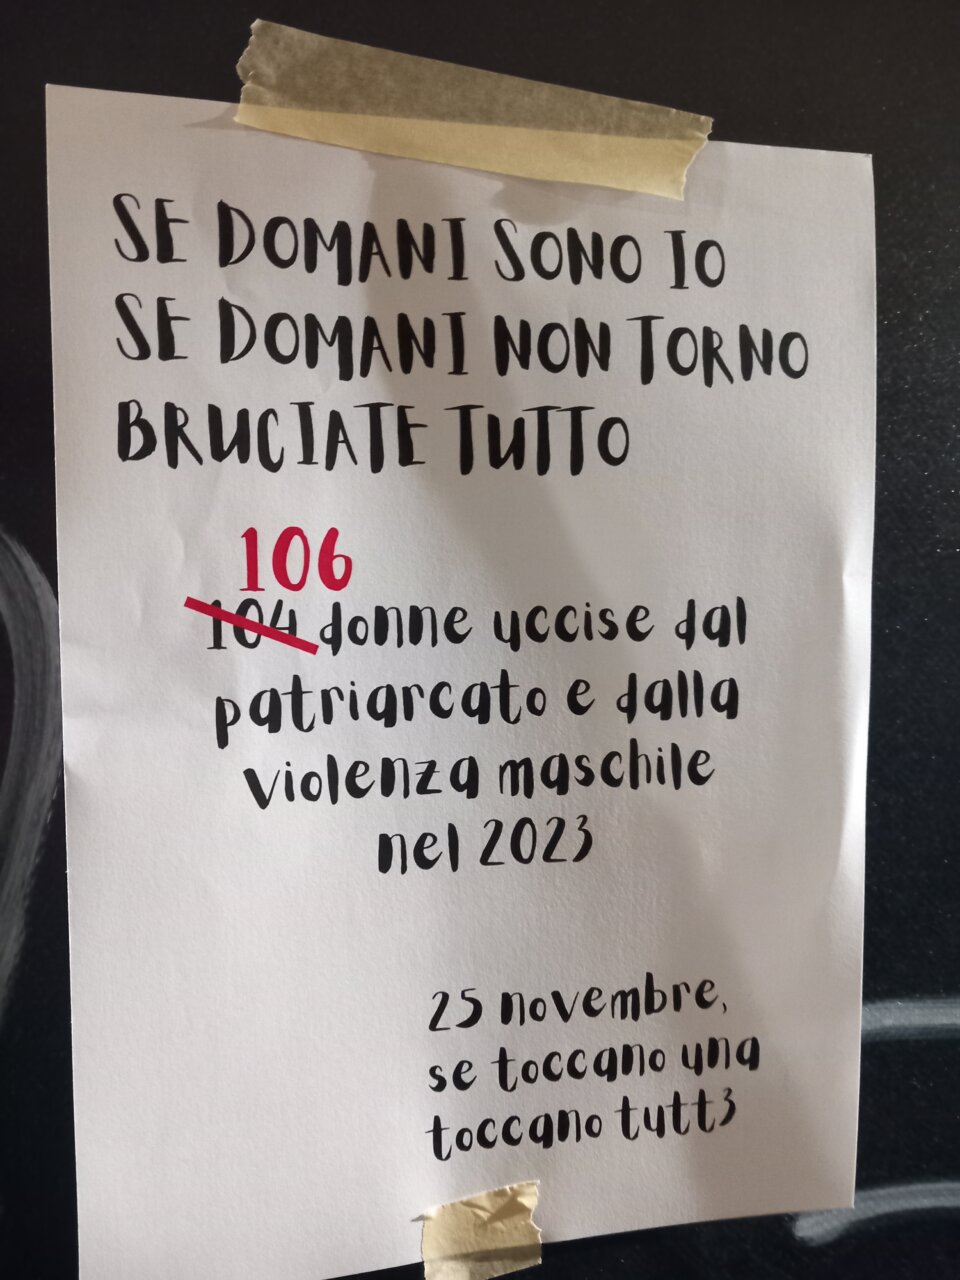 SE DOMANI SONO IO
SE DOMANI NON TORNO
BRUCIATE TUTTO
106
104 donne uccise dal
patriarcato e dalla
violenza maschile
nel 2023
25 novembre,
se toccano una
toccano tutt3